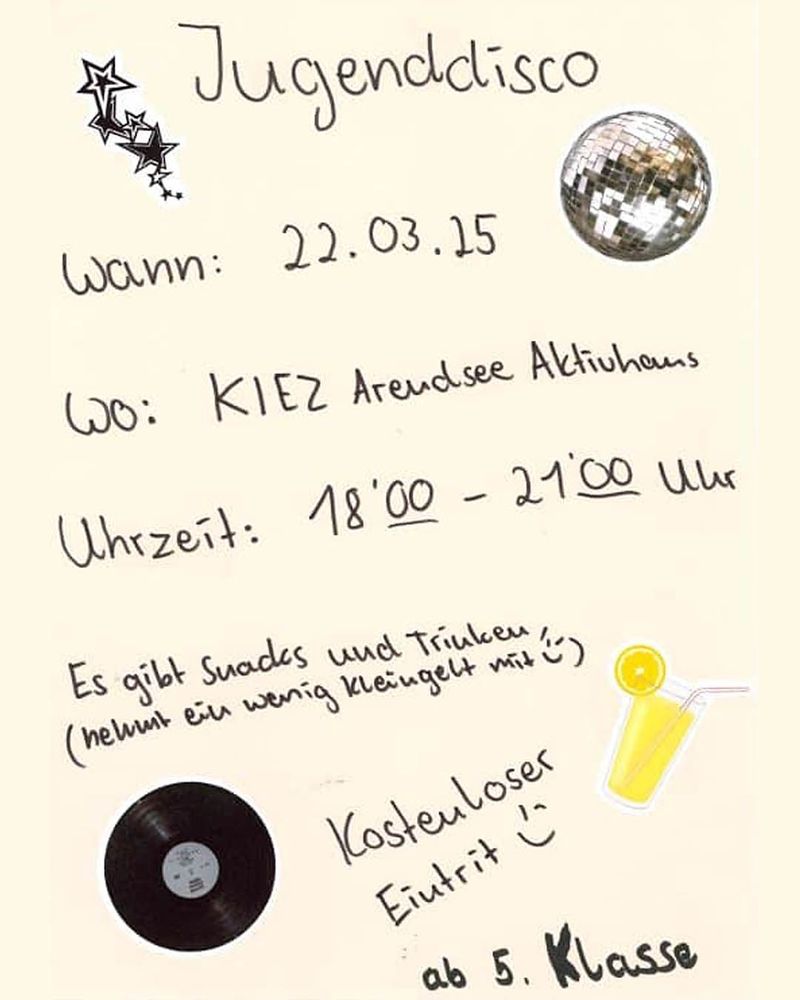 Jugenddisco
Wann: 22.03.25
Wo: KIEZ Arendsee Aktivhaus
Uhrzeit: 18'00 - 21'00 Uhr
Es gibt Snacks und Trinken
(nehmt ein wenig kleingelt mit)
Kostenloser
Eintrit
ab 5. Klasse